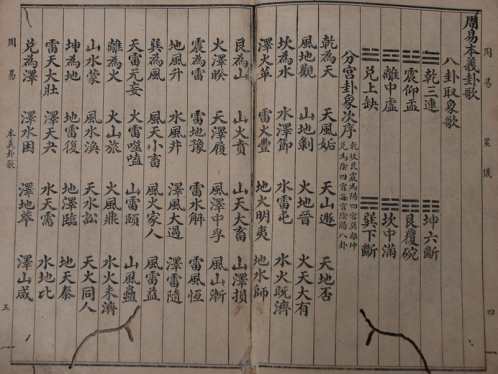 周易 筮儀 四
周易本義卦歌
八卦取象歌
☰乾三連 ☷坤六斷
☳震仰盂 ☶艮覆碗
☲離中虛 ☵坎中滿
☱兌上缺 ☴巽下斷
分宮卦象次序 乾坎艮震為陽四宮巽離坤兌為陰四宮每宮陰陽八卦
乾為天 天風姤 天山遯 天地否
風地觀 山地剝 火地晉 火天大有
坎為水 水澤節 水雷屯 水火既濟
澤火革 雷火豐 地火明夷 地水師
艮為山 山火賁 山天大畜 山澤損
火澤睽 天澤履 風澤中孚 風山漸
震為雷 雷地豫 雷水解 雷風恆
地風升 水風井 澤風大過 澤雷隨
巽為風 風天小畜 風火家人 風雷益
天雷无妄 火雷噬嗑 山雷頤 山風蠱
離為火 火山旅 火風鼎 火水未濟
山水蒙 風水渙 天水訟 天火同人
坤為地 地雷復 地澤臨 地天泰
雷天大壯 澤天夬 水天需 水地比
兌為澤 澤水困 澤地萃 澤山咸
周易 本義卦歌 五